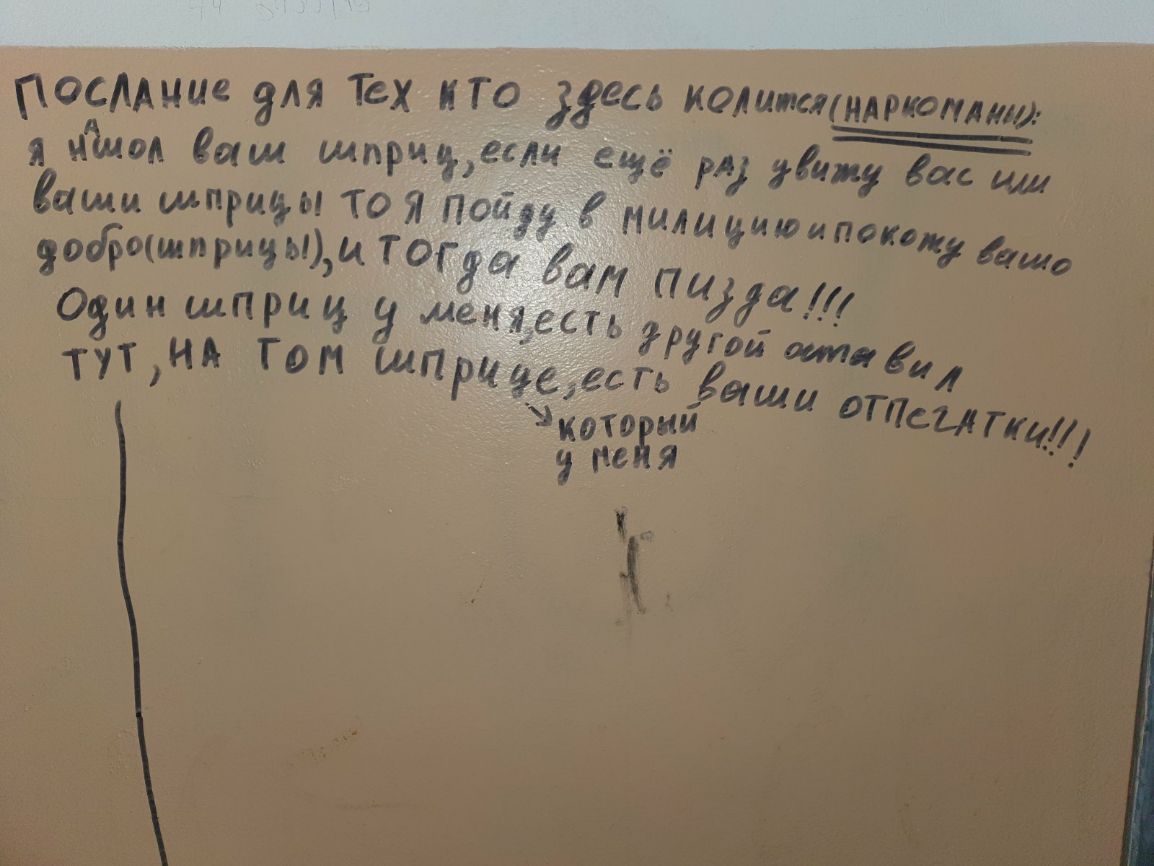 ПОСЛАНИЕ для Тех КТО здесь колится (НАРКОМАНЫ):
я нашол ваш шприц, если ещё раз увижу вас или
ваши шприцы ТО Я ПОЙду в милицию и покожу вашо
добро(шприцы), и ТОГда вам ПИЗДа!!!
Один шприц у меня, есть другой отавил
ТУТ, НА ТОМ шприце, есть ваши ОТПеЧАТКи!!!
который
у меня